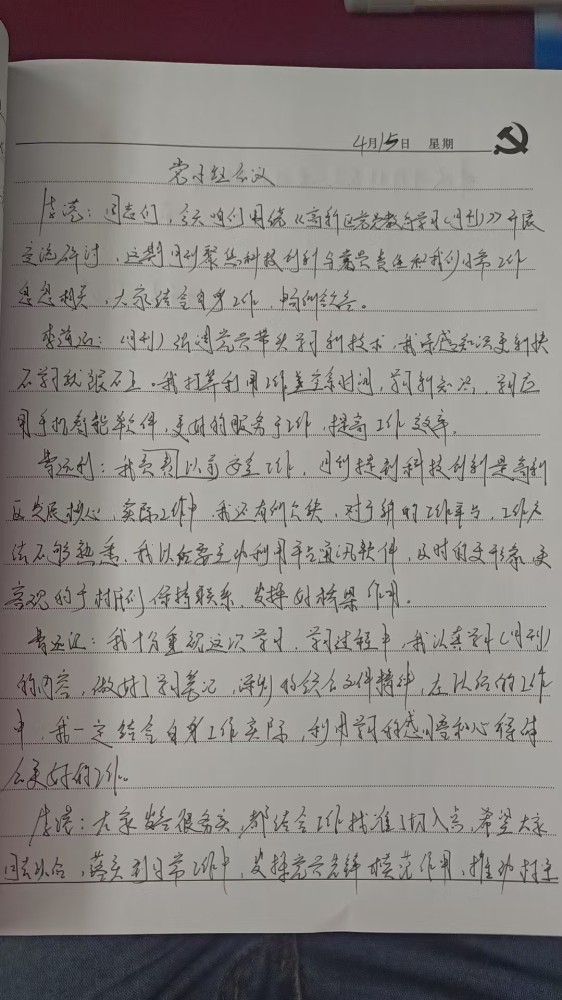 4月15日 星期
党小组会议
同志们，今天咱们围绕《高新区党员教育学习（月刊）》开展
交流研讨，这期月刊聚焦科技创新与党员责任和我们日常工作
息息相关，大家结合自身工作，畅所欲言。
（月刊）强调党员带头学习新技术，我深感知识更新快
不学习就跟不上。我打算利用工作空余时间，学习新知识，学习应
用手机智能软件，更好的服务于工作，提高工作效率。
我负责以前安全工作，月刊提到科技创新是高新
区发展核心，实际工作中，我还有所欠缺，对于新的工作平台，工作方
法不够熟悉，我以后要主动利用平台通讯软件，及时的更形象更
客观的于村民们保持联系，发挥好桥梁作用。
我十分重视这次学习，学习过程中，我认真学习（月刊）
的内容，做好了学习笔记，深刻的领会文件精神，在以后的工作
中，我一定结合自身工作实际，利用学习的感悟和心得体
会更好的工作。
大家发言很务实，都结合工作找准了切入点，希望大家
回去以后，落实到日常工作中，发挥党员先锋模范作用，推动